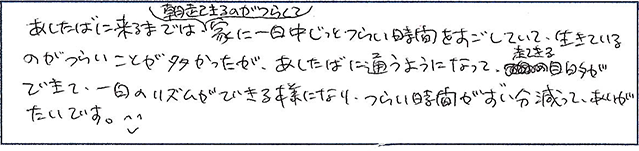 朝起きるのがつらくて
あしたばに来るまでは、家に一日中じっとつらい時間をすごしていて、生きている
のがつらいことが多かったが、あしたばに通うようになって、起きる目的が
できて、一日のリズムができる様になり、つらい時間がずい分減って、ありが
たいです。